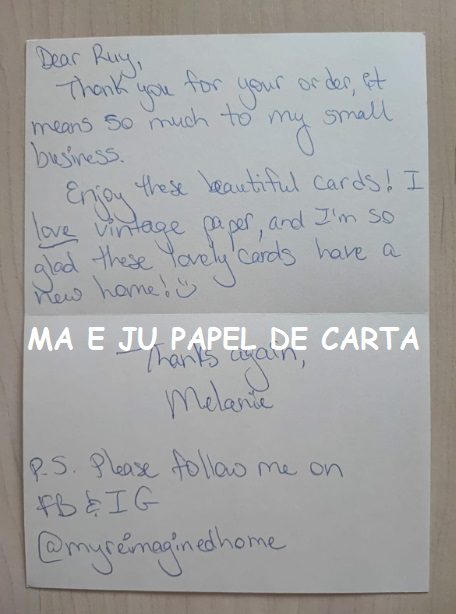 Dear Ruy,
Thank you for your order, it
means so much to my small
business.
Enjoy these beautiful cards! I
love vintage paper, and I'm so
glad these lovely cards have a
new home!
MA E JU PAPEL DE CARTA
Thanks again,
Melanie
P.S. Please follow me on
FB & IG
@myreimaginedhome